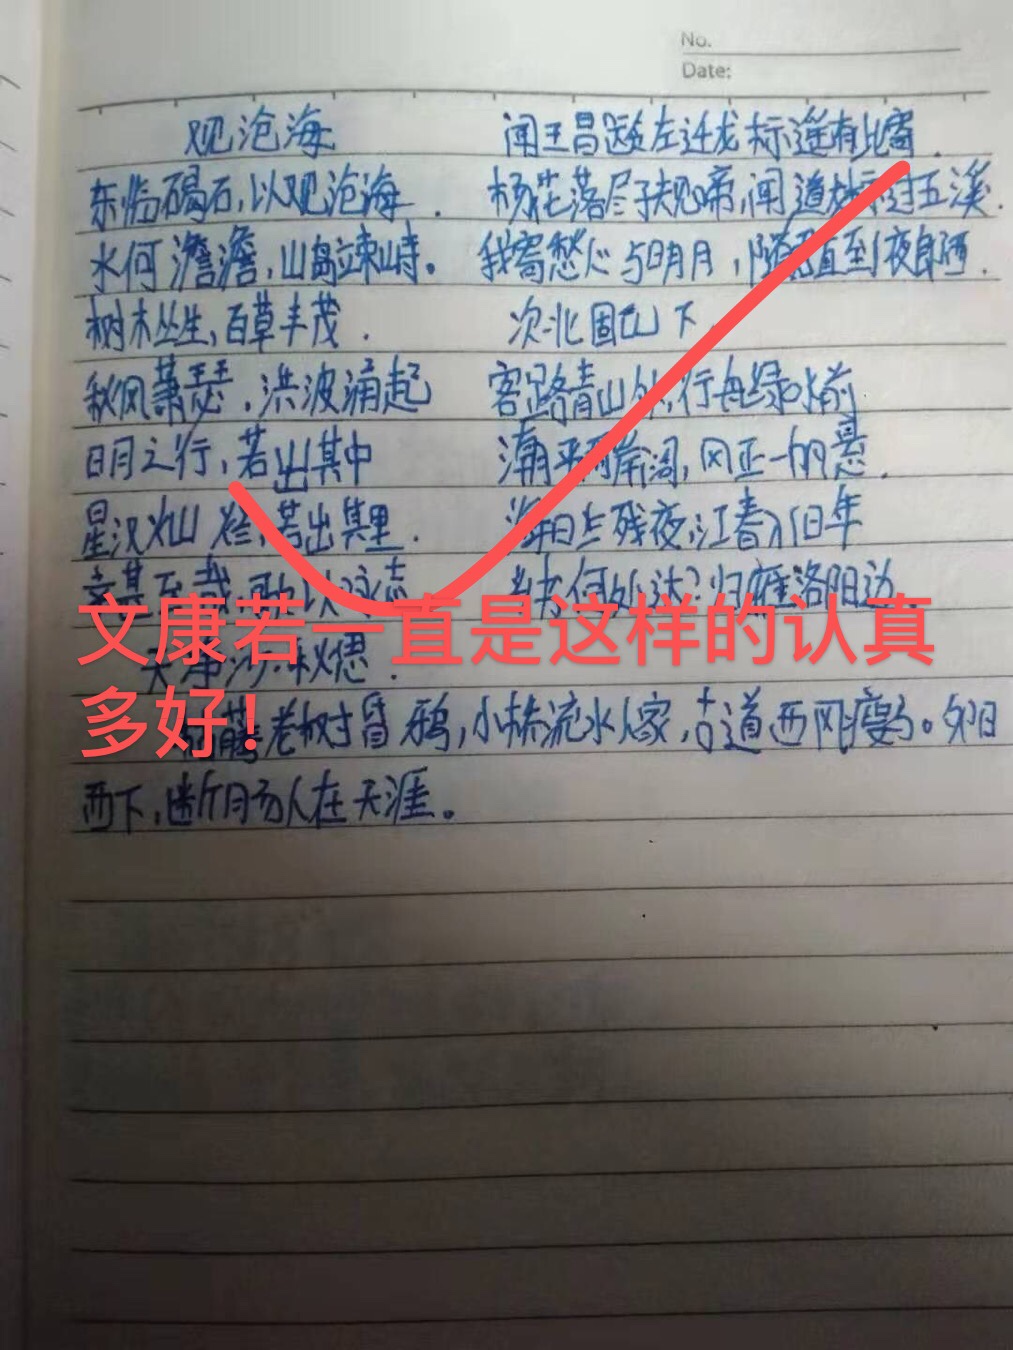 No.
Date:
观沧海
东临碣石,以观沧海.
水何澹澹,山岛竦峙。
树木丛生,百草丰茂.
秋风萧瑟,洪波涌起
日月之行,若出其中
星汉灿烂,若出其里.
幸甚至哉,歌以咏志
天净沙·秋思.
藤老树昏鸦,小桥流水人家,古道西风瘦马。夕阳
西下,断肠人在天涯。
闻王昌龄左迁龙标遥有此寄.
杨花落尽子规啼,闻道龙标过五溪.
我寄愁心与明月,随君直到夜郎西.
次北固山下.
客路青山外,行舟绿水前
潮平两岸阔,风正一帆悬.
海日生残夜,江春入旧年
乡书何处达?归雁洛阳边
文康若一直是这样的认真
多好!